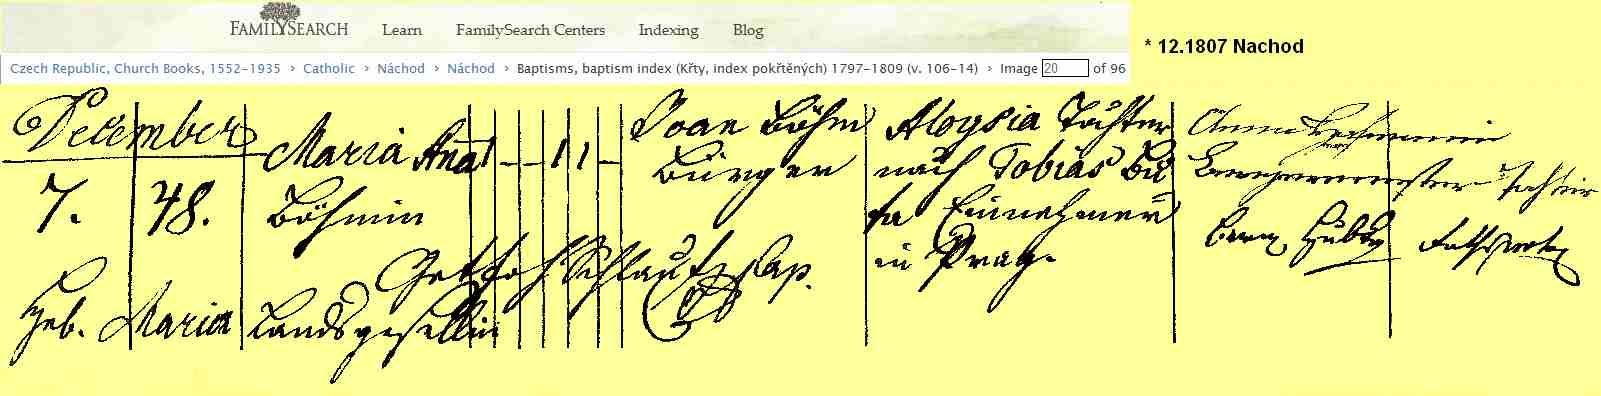 FAMILYSEARCH Learn FamilySearch Centers Indexing Blog
* 12.1807 Nachod
Czech Republic, Church Books, 1552-1935 › Catholic › Náchod › Náchod › Baptisms, baptism index (Křty, index pokřtěných) 1797-1809 (v. 106-14) › Image 20 of 96
December
7. 48.
Maria Ana
Böhmin
1 1
Joan Böhm
Bürger
Aloysia Tochter
nach Tobias Bu
ta Einnehmer
in Prag.
Anna
Bürgermeister
Getauft Schlauf Cap.
Heb. Maria Landsgesellin